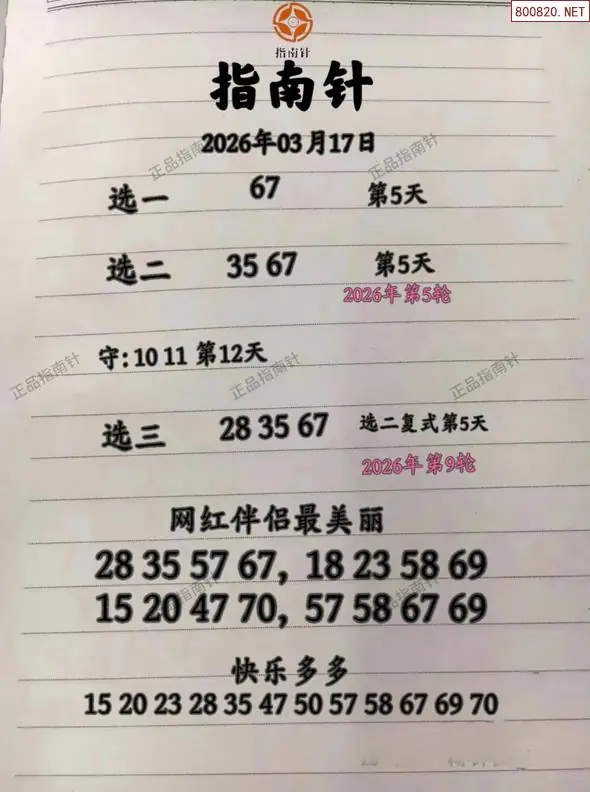 800820.NET
指南针
指南针
2026年03月17日
正品指南针 正品指南针
选一 67 第5天
选二 35 67 第5天
2026年第5轮
守:10 11 第12天
正品指南针 正品指南针 正品指南针
选三 28 35 67 选二复式第5天
2026年第9轮
网红伴侣最美丽
28 35 57 67, 18 23 58 69
正品指南针 正品指南针
15 20 47 70, 57 58 67 69
快乐多多
15 20 23 28 35 47 50 57 58 67 69 70